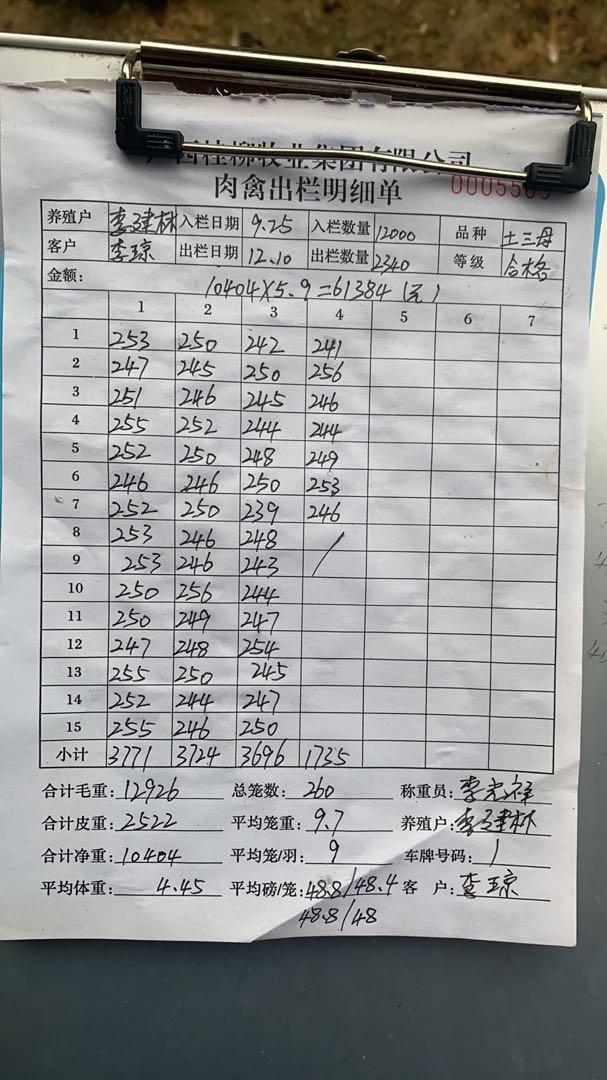 西桂柳牧业集团有限公司
肉禽出栏明细单
养殖户 李建林 入栏日期 9.25 入栏数量 12000 品种 土三母
客户 李琼 出栏日期 12.10 出栏数量 2340 等级 合格
金额: 10404×5.9=61384(元)
1 2 3 4 5 6 7
1 253 250 242 241
2 247 245 250 256
3 251 246 245 246
4 255 252 244 244
5 252 250 248 249
6 246 246 250 253
7 252 250 239 246
8 253 246 248 /
9 253 246 243
10 250 256 244
11 250 249 247
12 247 248 254
13 255 250 245
14 252 244 247
15 255 246 250
小计 3771 3724 3696 1735
合计毛重: 12926 总笼数: 260 称重员:
合计皮重: 2522 平均笼重: 9.7 养殖户: 李建林
合计净重: 10404 平均笼/羽: 9 车牌号码: 1
平均体重: 4.45 平均磅/笼: 48.8/48.4 客 户: 李琼
48.8/48